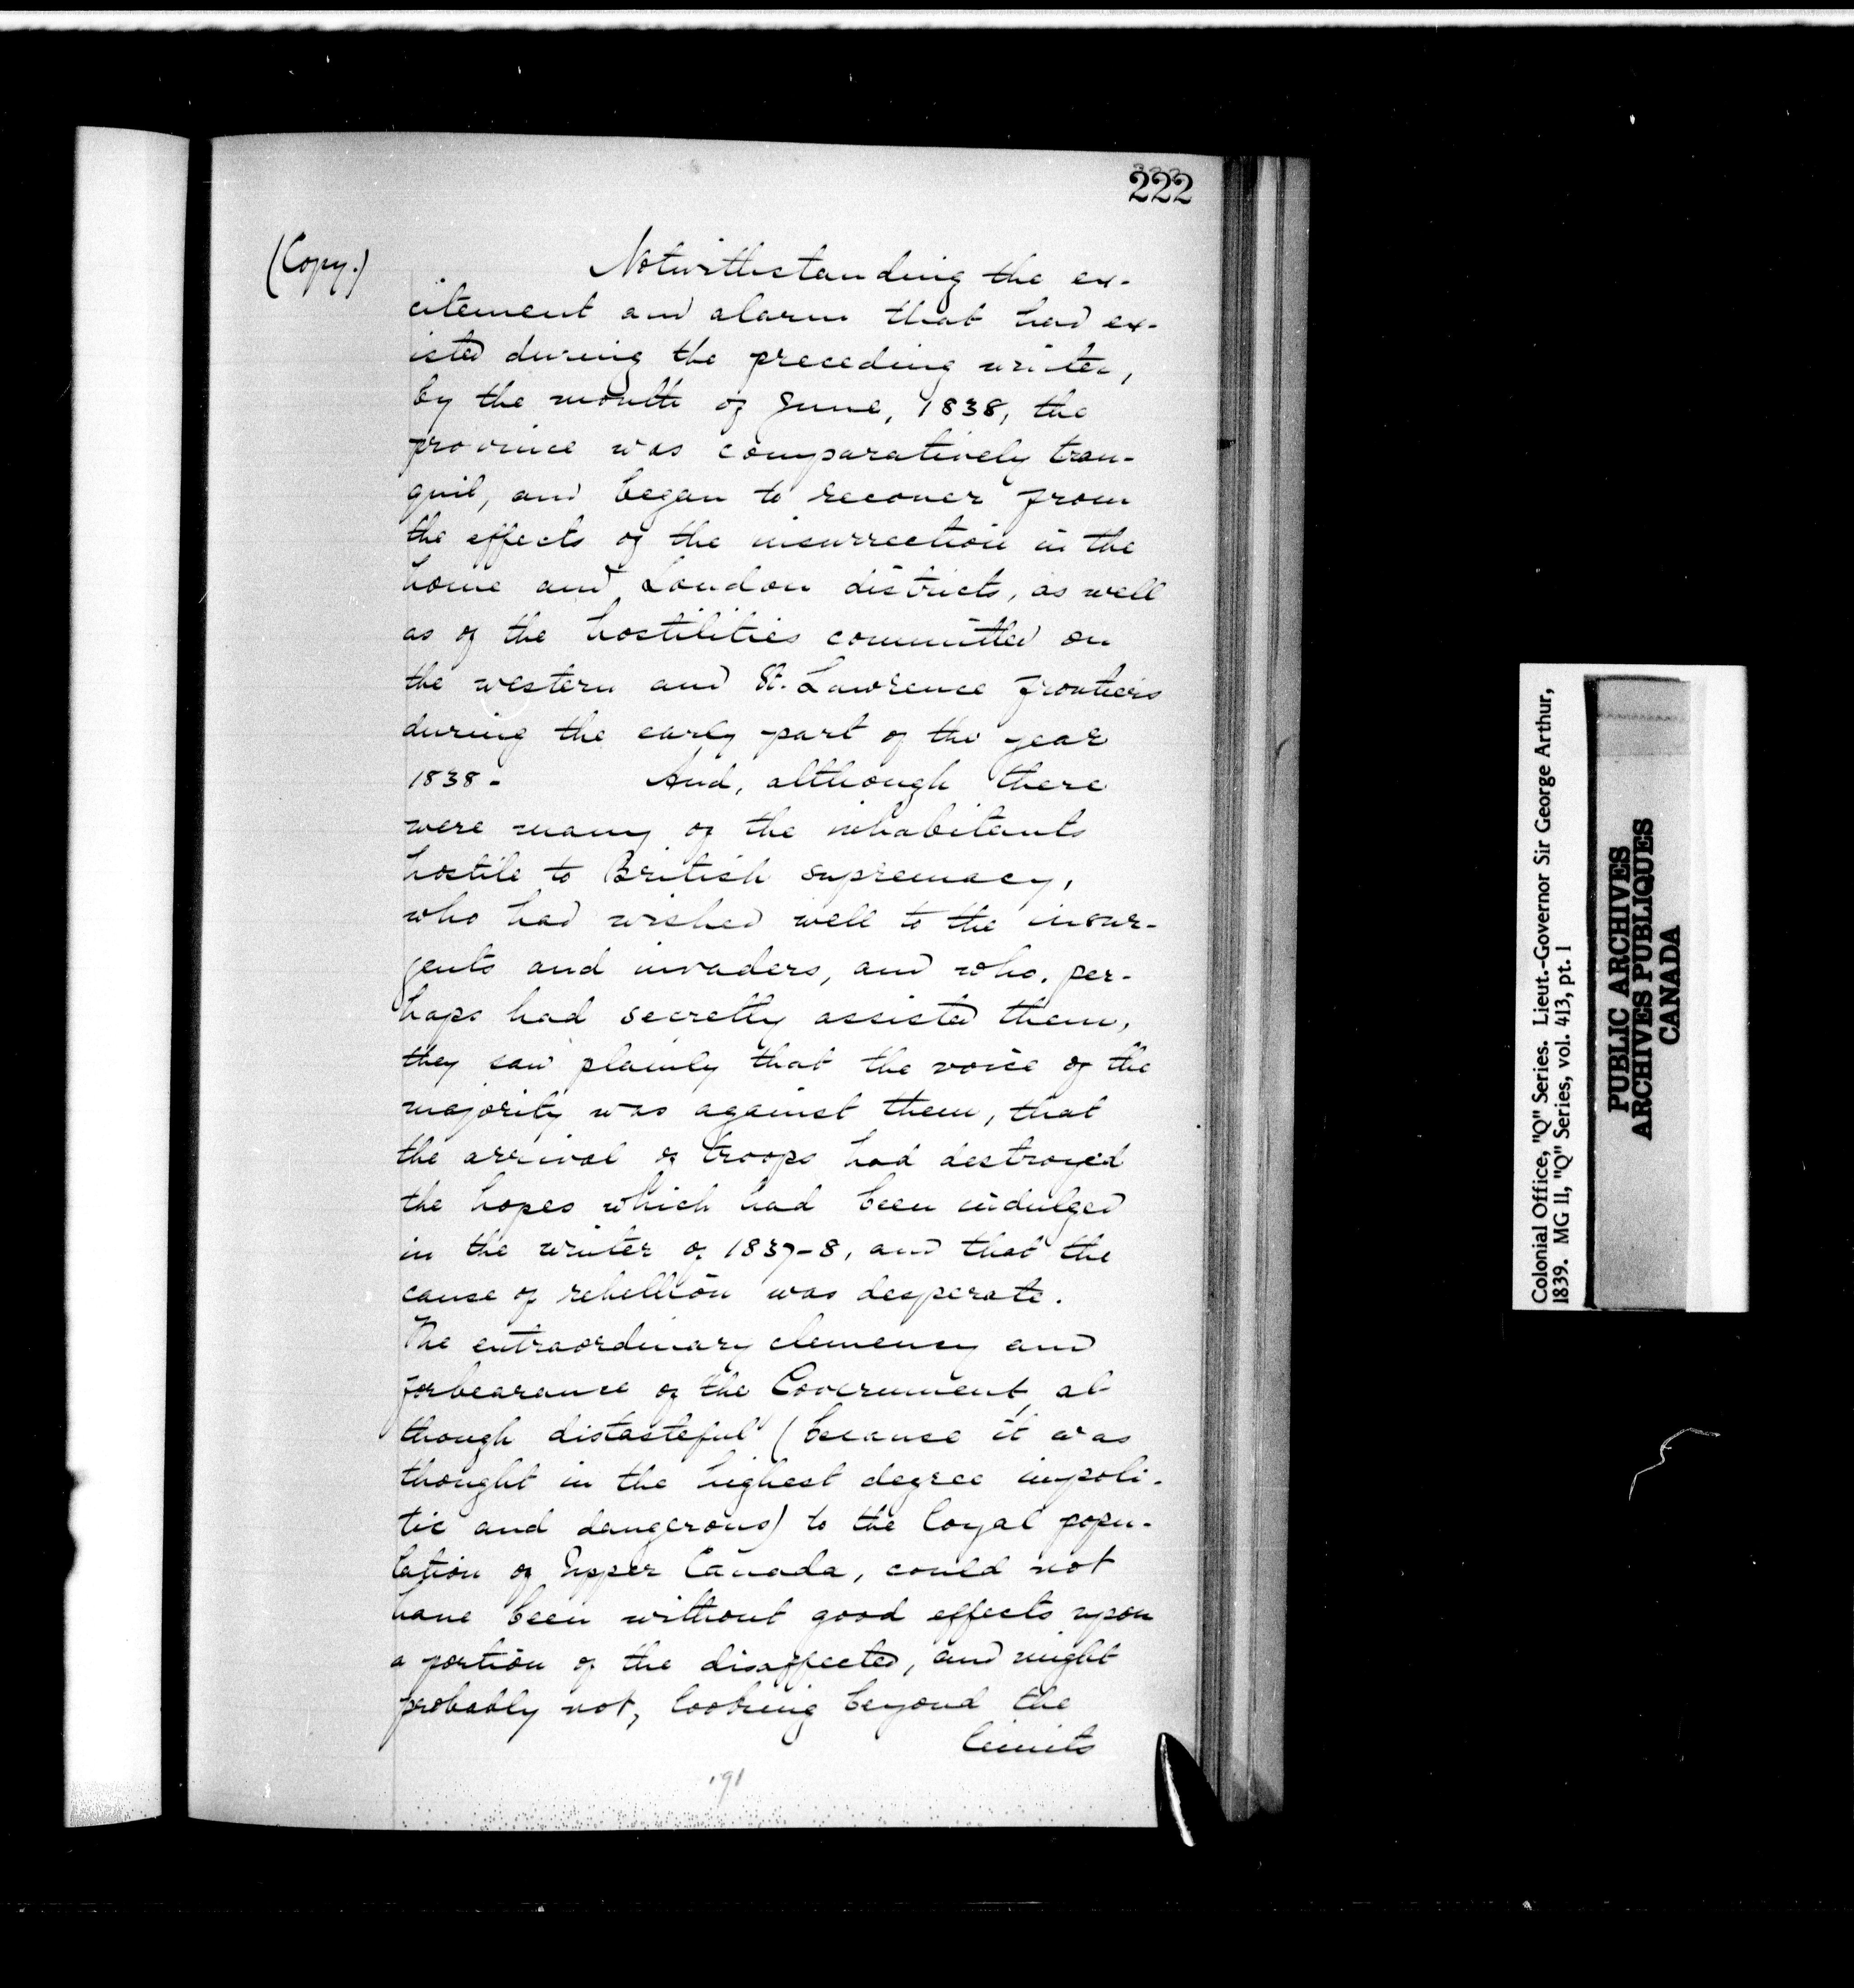 222
(Copy.)
Notwithstanding the ex-
citement and alarm that had ex-
isted during the preceding winter,
by the month of June, 1838, the
province was comparatively tran-
quil, and began to recover from
the effects of the insurrection in the
home and London districts, as well
as of the hostilities committed on
the western and St. Lawrence frontiers
during the early part of the year
1838- And, although there
were many of the inhabitants
hostile to British supremacy,
who had wished well to the insur-
gents and invaders, and who, per-
haps had secretly assisted them,
they saw plainly that the voice of the
majority was against them, that
the arrival of troops had destroyed
the hopes which had been indulged
in the winter of 1837-8, and that the
cause of rebellion was desperate.
The extraordinary clemency and
forbearance of the Government, al-
though distasteful (because it was
thought in the highest degree impoli-
tic and dangerous) to the loyal popu-
lation of Upper Canada, could not
have been without good effects upon
a portion of the disaffected, and might
probably not, looking beyond the
limits
191
Colonial Office, "Q" Series. Lieut.-Governor Sir George Arthur,
1839. MG 11, "Q" Series, vol. 413, pt. 1
PUBLIC ARCHIVES
ARCHIVES PUBLIQUES
CANADA